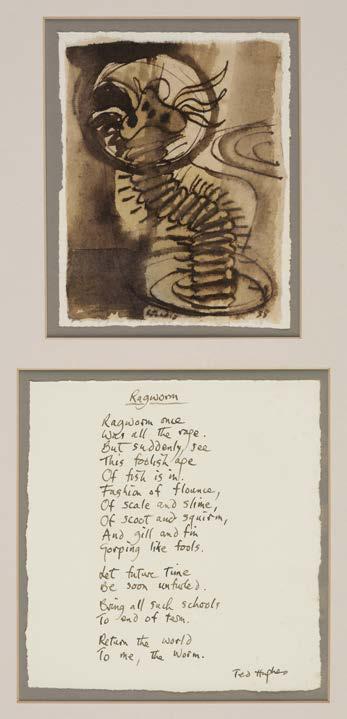 Ragworm
Ragworm once
Was all the rage.
But suddenly see
This foolish age
Of fish is in.
Fashion of flounce,
Of scale and slime,
Of scoot and squirm,
And gill and fin
Gorping like fools.
Let future Time
Be soon unfurled.
Bring all such schools
To end of term.
Return the world
To me, the Worm.
Ted Hughes